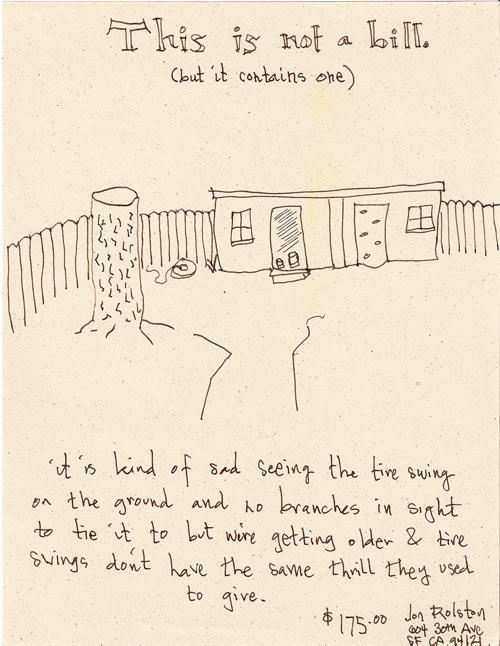 This is not a bill.
(but it contains one)
it is kind of sad seeing the tire swing
on the ground and no branches in sight
to tie it to but we're getting older & tire
swings don't have the same thrill they used
to give.
$175.00 Jon Rolston
604 30th Ave
SF CA 94121